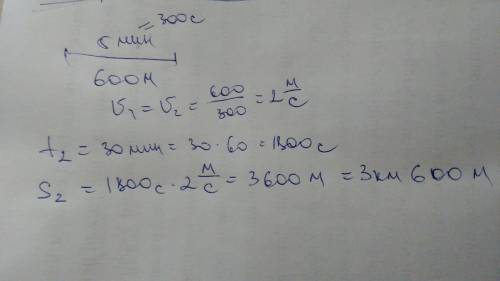 5 мин = 300с
600м
V₁ = V₂ = 600/300 = 2 м/с
t₂ = 30мин = 30·60 = 1800с
S₂ = 1800с · 2 м/с = 3600м = 3км 600м